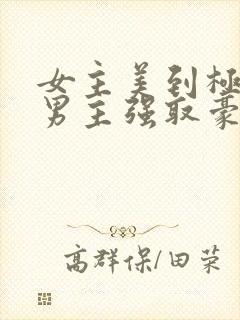 女主美到極
男主强取豪
高群保/田荣